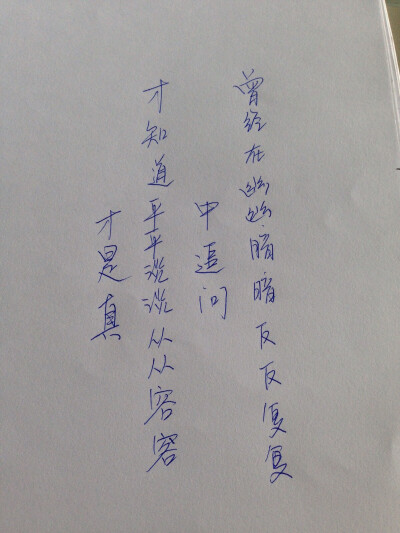 曾经在幽幽暗暗反反復复
中追问
才知道平平淡淡从从容容
才是真